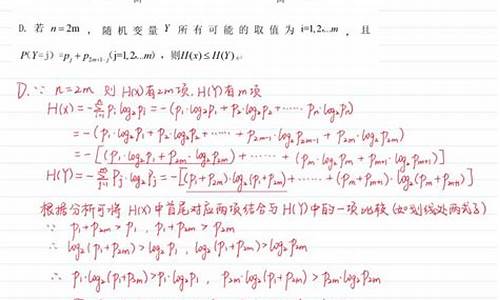 D. 若 n=2m ， 随机变量 Y 所有可能的取值为 i=1,2...m ， 且
P(Y=j) =p_j+p_{2m+1-j}(j=1,2...m) ，则H(x)≤H(Y)。
D. ∵ n=2m 则 H(x)有2m项, H(Y)有m项
H(x)=-Σ p_i log₂p_i =-(p₁·log₂p₁+p₂·log₂p₂+······pₙ·log₂pₙ)
=-(p₁·log₂p₁+p₂·log₂p₂+······+p_{2m-1}·log₂p_{2m-1}+p_{2m}·log₂p_{2m})
=-[(p₁·log₂p₁+p_{2m}·log₂p_{2m})+······+(p_m·log₂p_m+p_{m+1}·log₂p_{m+1})]
H(Y)=-Σ p_j·log₂p_j=-[(p₁+p_{2m})·log₂(p₁+p_{2m})+······+(p_m+p_{m+1})·log₂(p_m+p_{m+1})]
根据分析可将 H(x)中首尾对应两项结合与H(Y)中的一项比较(如划线处两式子)
∵ p₁+p_{2m}>p₁ , p₁+p_{2m}>p_{2m}
∴ log₂(p₁+p_{2m})>log₂p₁ , log₂(p₁+p_{2m})>log₂p_{2m}
∴ p₁·log₂(p₁+p_{2m})>p₁·log₂p₁ , p_{2m}·log₂(p₁+p_{2m})>p_{2m}·log₂p_{2m}